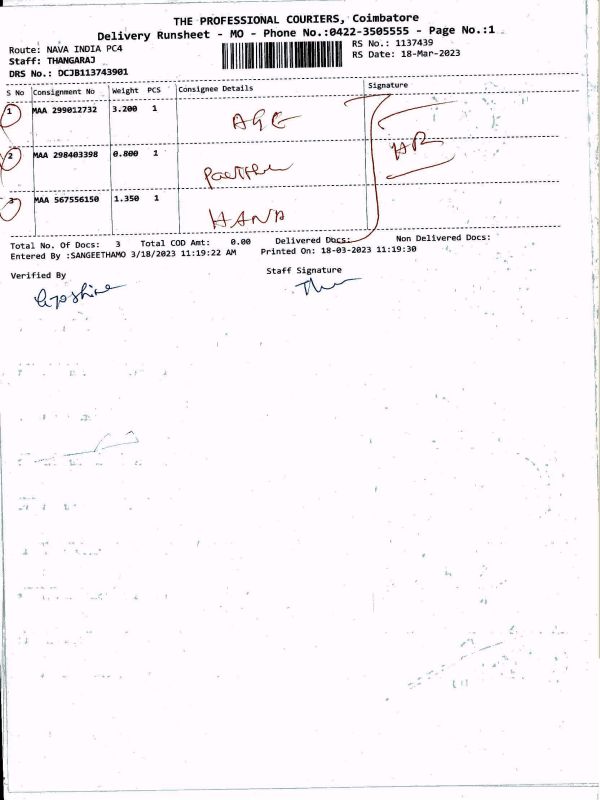 THE PROFESSIONAL COURIERS, Coimbatore
Delivery Runsheet - MO - Phone No.:0422-3505555 - Page No.:1
Route: NAVA INDIA PC4
RS No.: 1137439
Staff: THANGARAJ
RS Date: 18-Mar-2023
DRS No.: DCJB113743901
S No Consignment No Weight PCS Consignee Details Signature
1 MAA 299012732 3.200 1 AGE
HR
2 MAA 298403398 0.800 1
3 MAA 567556150 1.350 1 HAND
Total No. Of Docs: 3 Total COD Amt: 0.00 Delivered Docs: Non Delivered Docs:
Entered By :SANGEETHAMO 3/18/2023 11:19:22 AM Printed On: 18-03-2023 11:19:30
Verified By Staff Signature